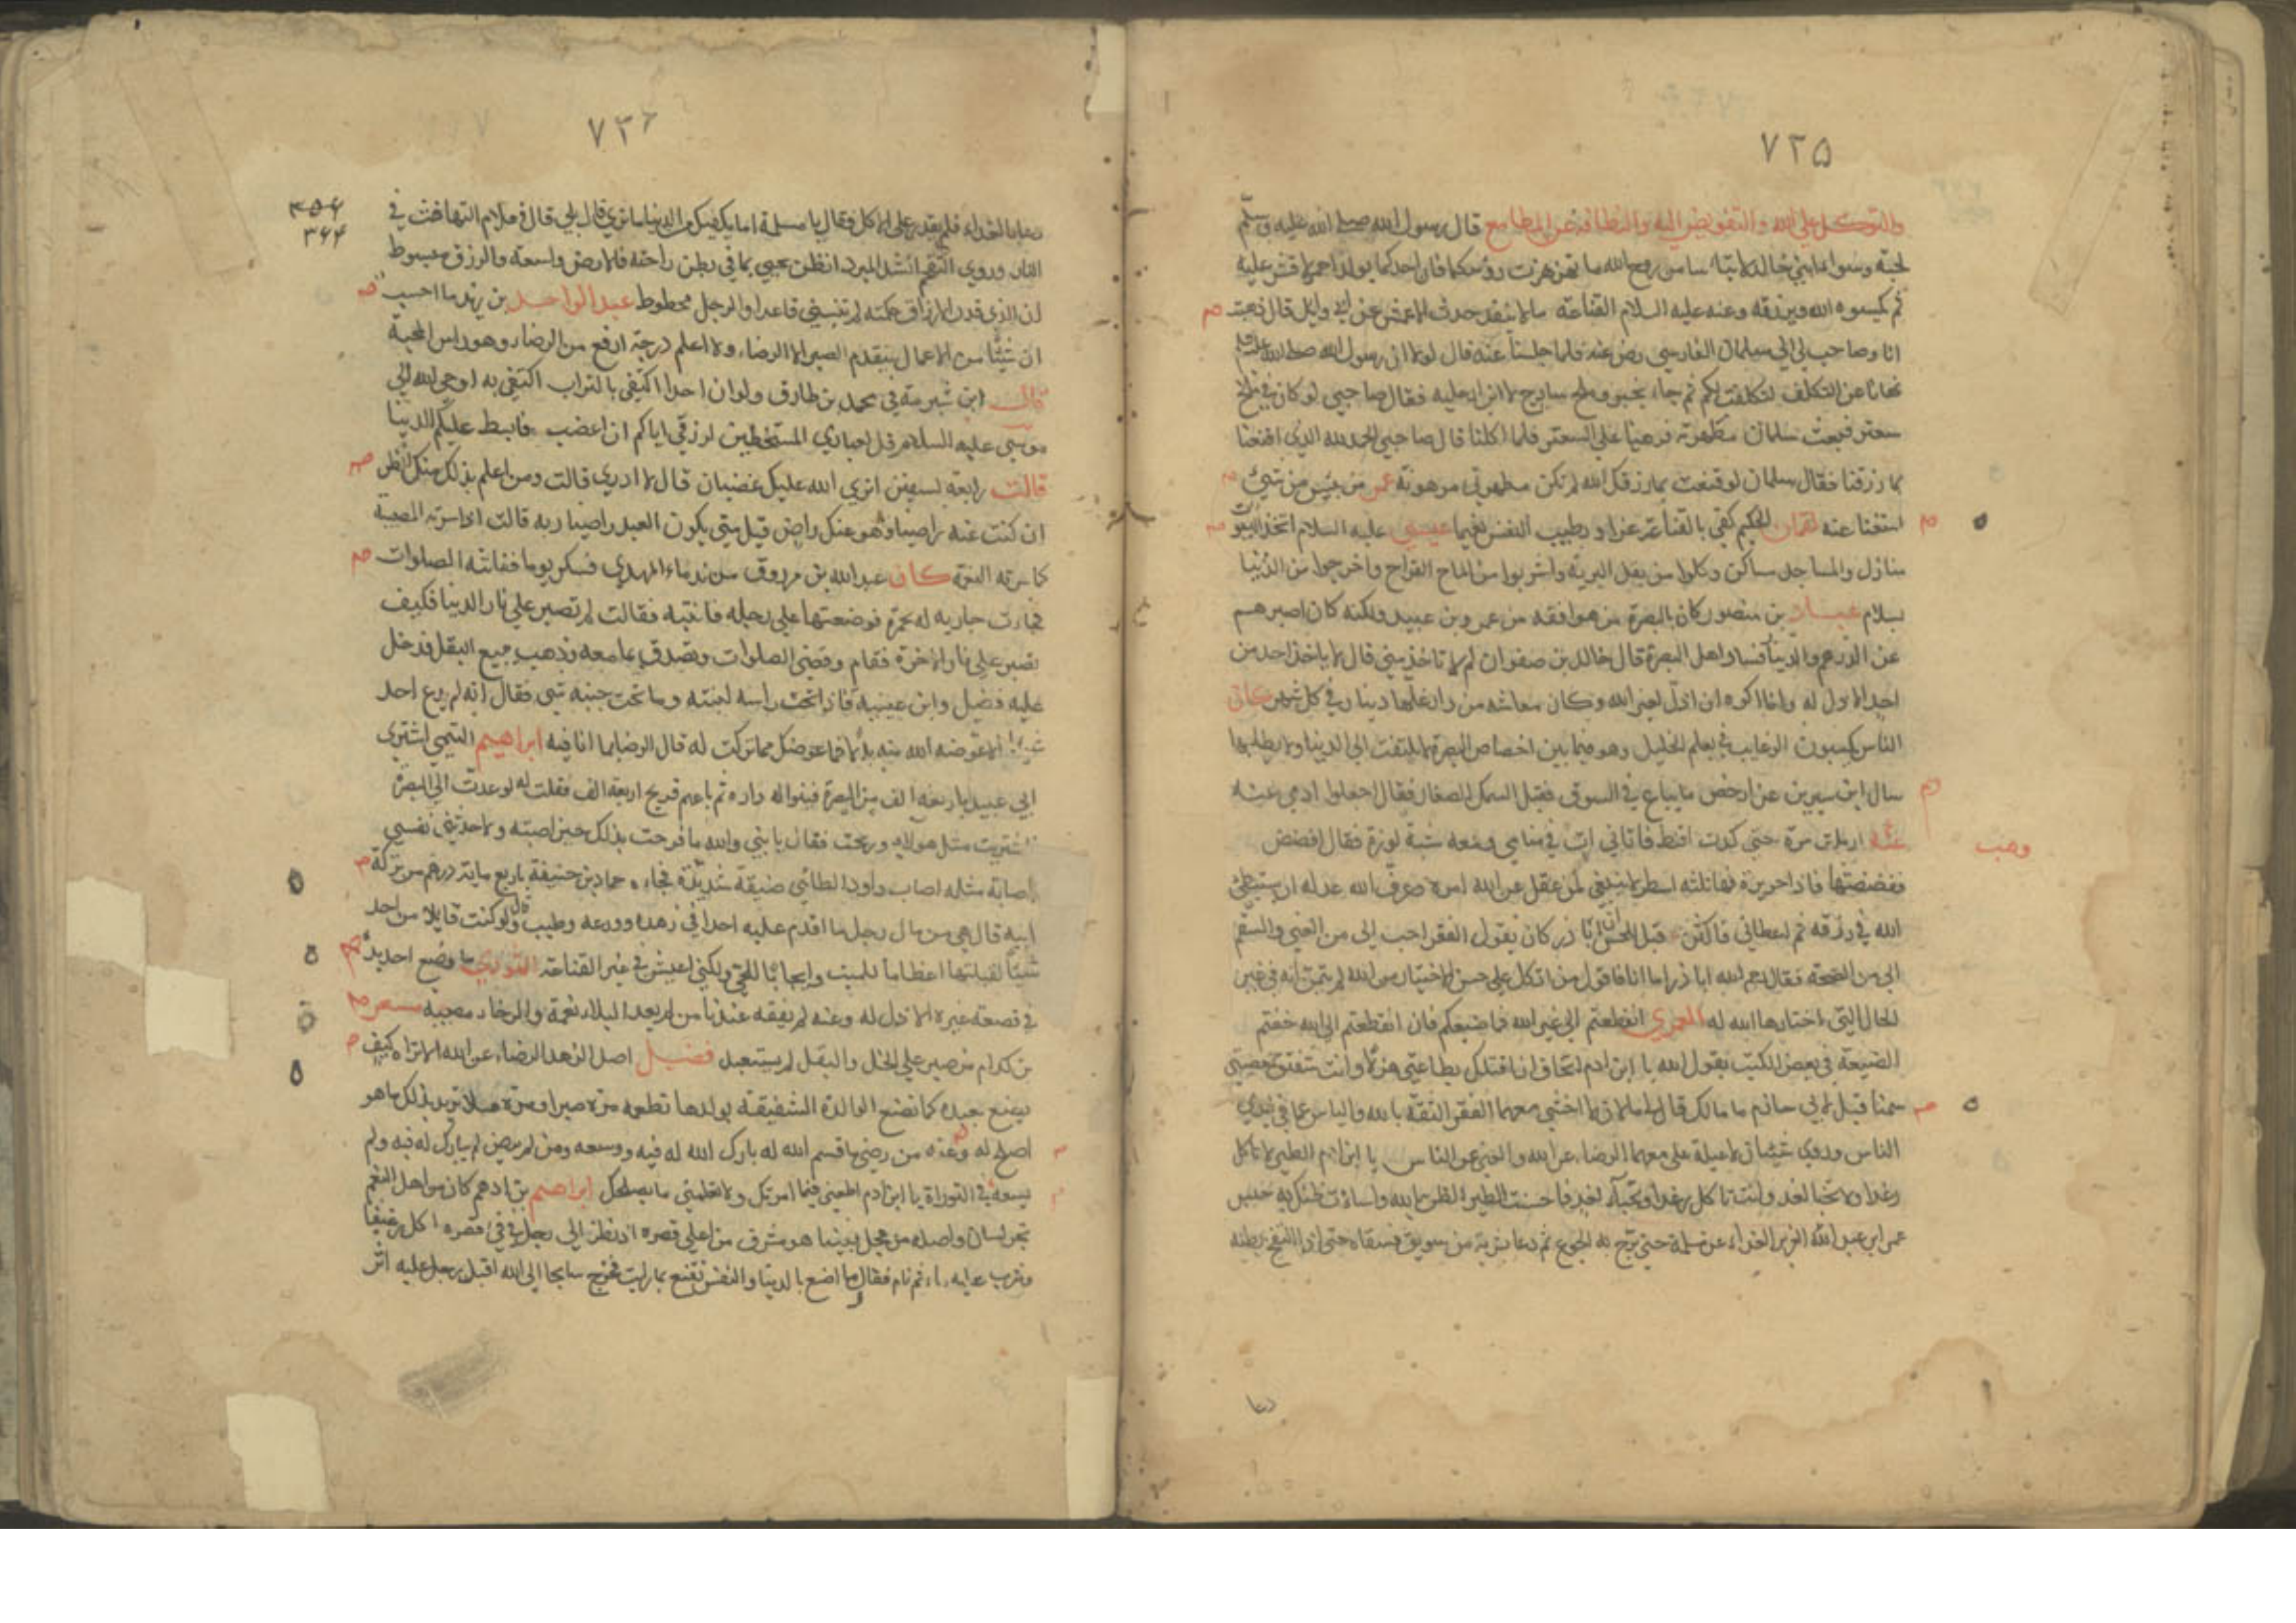 ٧٢۵
والتوكل على الله والتفويض اليه والنظافة عن المطامع قال رسول الله صلى الله عليه وسلم
لحبة وسوا ابني خالد لا تيأسا من روح الله ما تهزهزت رؤسكما فان احدكما يولد احمر لا قشر عليه
ثم يكسوه الله ويرزقه وعنه عليه السلام القناعة مال لا ينفد حدث الاعمش عن ابي وايل قال ذهبت
انا وصاحب لي الي سلمان الفارسي رضي عنه فلما جلسنا عنه قال لولا ان رسول الله صلى الله عليه
نهانا عن التكلف لتكلفت لكم ثم جاء بخبز وملح ساذج لا ابزار عليه فقال صاحبي لو كان في ملح
سعتر فبعث سلمان مطهرته فرهنها علي السعتر فلما اكلنا قال صاحبي الحمد لله الذي اقنعنا
بما رزقنا فقال سلمان لو قنعت بما رزقك الله لم تكن مطهرتي مرهونة عمر من يئس من شيئ
استغنا عنه لقمان الحكيم كفي بالقناعة عزا وبطيب النفس نعيما عيسي عليه السلام اتخذ البيوت
منازل والمساجد مساكن وكلوا من بقل البرية واشربوا من الماء القراح واخرجوا من الدنيا
بسلام عباد بن منصور كان بالبصرة من هو افقه من عمرو بن عبيد ولكنه كان اصبرهم
عن الدرهم والدينار فساد اهل البصرة قال خالد بن صفوان لم لا تاخذ مني قال لا ياخذ احد من
احد الا ذل له وانا اكره ان اذل لغير الله وكان معاشه من دار غلتها دينار في كل شهر كان
الناس يكسبون الرغايب بعلم الخليل وهو فيما بين اخصاص البصرة لا يلتفت الى الدنيا ولا يطلبها
سال ابن سيرين عن ارخص ما يباع في السوق فقيل السمك الصغار فقال اجعلوا ادمي عنه
وهب
عنه ارملت مرة حتى كدت اقنط فاتاني ات في منامي ومعه شبه لوزة فقال افضض
ففضضتها فاذا حريرة فيها ثلثة اسطر لا ينبغي لمن عقل عن الله امره وعرف الله عدله ان يستبطئ
الله في رزقه ثم اعطاني فاكثر قيل للحسن ان ابا ذر كان يقول الفقر احب الى من الغني والسقم
الى من الصحة فقال رحم الله ابا ذر اما انا فاقول من اتكل على حسن الاختيار من الله لم يتمن انه في غير
الحال التي اختارها الله له العمري انقطعتم الى غير الله فما ضيعكم فان انقطعتم الى الله خفتم
الضيعة في بعض الكتب يقول الله يا ابن ادم اتخاف ان اقتلك بطاعتي هزلا وانت تتفتق بمعصيتي
سمنا قيل لابي حازم ما مالك قال مالان لا اخشي معهما الفقر الثقة بالله والياس عما في ايدي
الناس وروي شيئان لا عيلة علي معهما الرضاء عن الله والغني عن الناس يا ابن ادم الطير لا تاكل
رغدا ولا تخبا لغد وانت تاكل رغدا وتخبأ لغد فاحسنت الطير الظن بالله واساءت ظنك به حبس
عمر ابن عبد الله العزيز الغداء عن مسلمة حتى برح به الجوع ثم دعا بشربة من سويق فسقاه حتى اذا انتفخ بطنه
٧٢٦
٣٥٤
٣٤٤
دعا بالغداء فلم يقدر على الاكل فقال يا مسلمة اما يكفيك من الدنيا ما تري قال بلى قال فعلام التهافت في
النار وروي التقحم انشد المبرد اتظن يحيى بما في بطن راحته فالارض واسعة والرزق مبسوط
ان الذي قدر الارزاق حكمته لم تنسني قاعدا والرجل محطوط عبد الواحد بن زيد ما احسب
ان شيئا من الاعمال يتقدم الصبر الا الرضاء ولا اعلم درجة ارفع من الرضاء وهو راس المحبة
قال ابن شبرمة في محمد بن طارق ولو ان احدا اكتفى بالتراب اكتفي به اوحي الله الي
موسي عليه السلام قل لعبادي المتسخطين لرزقي اياكم ان اغضب فابسط عليكم الدنيا
قالت رابعة لسفين اتري الله عليك غضبان قال لا ادري قالت ومن اعلم بذلك منك انظر
ان كنت عنه راضيا فهو عنك راض قيل متي يكون العبد راضيا ربه قالت اذا سرته المصيبة
كما سرته النعمة كان عبد الله بن مرزوق من ندماء المهدي فسكر يوما ففاتته الصلوات
فجاءت جارية له بجمرة فوضعتها على رجله فانتبه فقالت لم تصبر علي نار الدنيا فكيف
تصبر علي نار الاخرة فقام وقضى الصلوات وتصدق بما معه وذهب يبيع البقل فدخل
عليه فضيل وابن عيينة فاذا تحت راسه لبنة وما تحت جنبه شي فقال انه لم يدع احد
شيئا الا عوضه الله منه بدلا فما عوضك مما تركت له قال الرضا بما انا فيه ابراهيم التيمي اشتري
ابي عبيد باربعة الف من البصرة فبنوا له داره ثم باعهم فربح اربعة الف فقلت له لو عدت الى البصرة
اشتريت مثل هولاء وربحت فقال يا بني والله ما فرحت بذلك حين اصبته ولا حدثتني نفسي
اصابة مثله اصاب داود الطائي ضيقة شديدة فجاءه حماد بن حنيفة باربع ماية درهم من تركة
ابيه قال هي من مال رجل ما اقدم عليه احدا في زهده وورعه وطيب قال ولو كنت قابلا من احد
شيئا لقبلتها اعظاما للميت وايجابا للحي ولكني اعيش في عز القناعة الثوري ما وضع احد يده
في قصعة غيره الا ذل له وعنه لم يفقه عندنا من لم يعد البلاء نعمة والرخاء مصيبه مسعر
بن كدام من صبر علي الخل والبقل لم يستعبد فضيل اصل الزهد الرضاء عن الله الا تراه كيف
يصنع بعبده كما تصنع الوالدة الشفيقة بولدها تطعمه مرة صبرا ومرة عسلا تريد بذلك ما هو
اصلح له وعنه من رضي بما قسم الله له بارك الله له فيه ووسعه ومن لم يرض لم يبارك له فيه ولم
يسعه في التوراة يا ابن ادم اطعني فيما امرتك ولا تعلمني ما يصلحك ابراهيم بن ادهم كان من اهل النعم
بخراسان واصله من عجل فبينما هو مشرف من اعلى قصره اذ نظر الى رجل في فئ قصره اكل رغيفا
وشرب عليه ماء ثم نام فقال ما اصنع بالدنيا والنفس تقنع بما رايت فخرج سايحا الى الله اقبل رجل عليه اثر